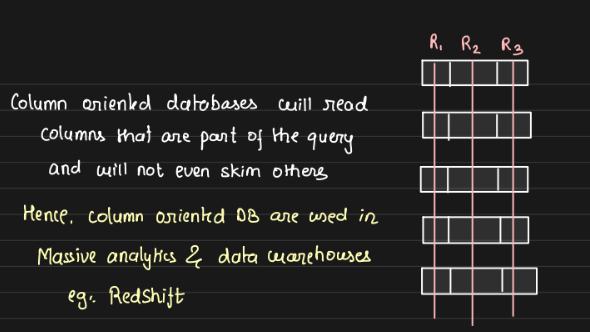 R1 R2 R3
Column oriented databases will read
columns that are part of the query
and will not even skim others
Hence, column oriented DB are used in
Massive analytics & data warehouses
eg. Redshift